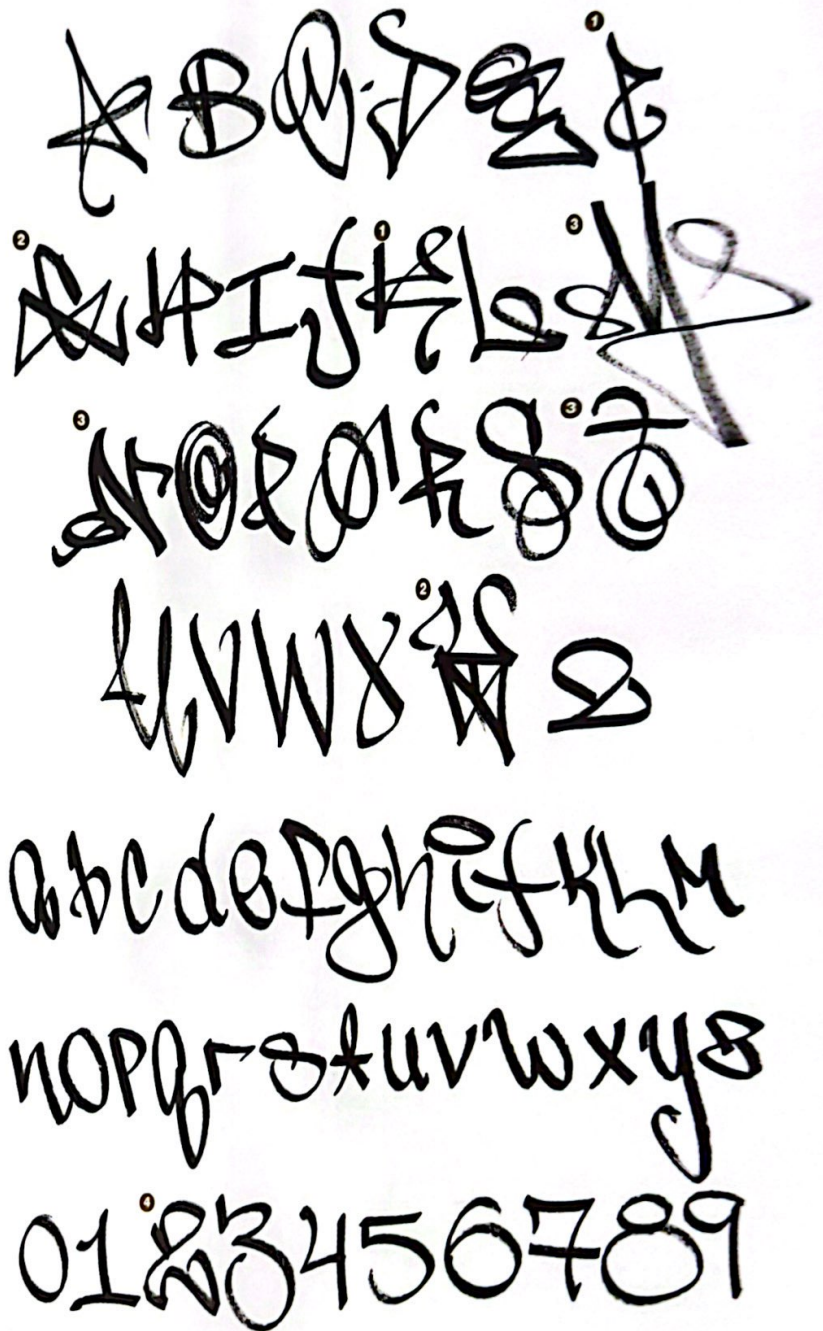 A B C D E ❶ F
❷ G H I J ❶ K L ❸ M
❸ N O P Q R S ❸ T
U V W X ❷ Y Z
a b c d e f g h i j k l m
n o p q r s t u v w x y z
0 1 ❹ 2 3 4 5 6 7 8 9